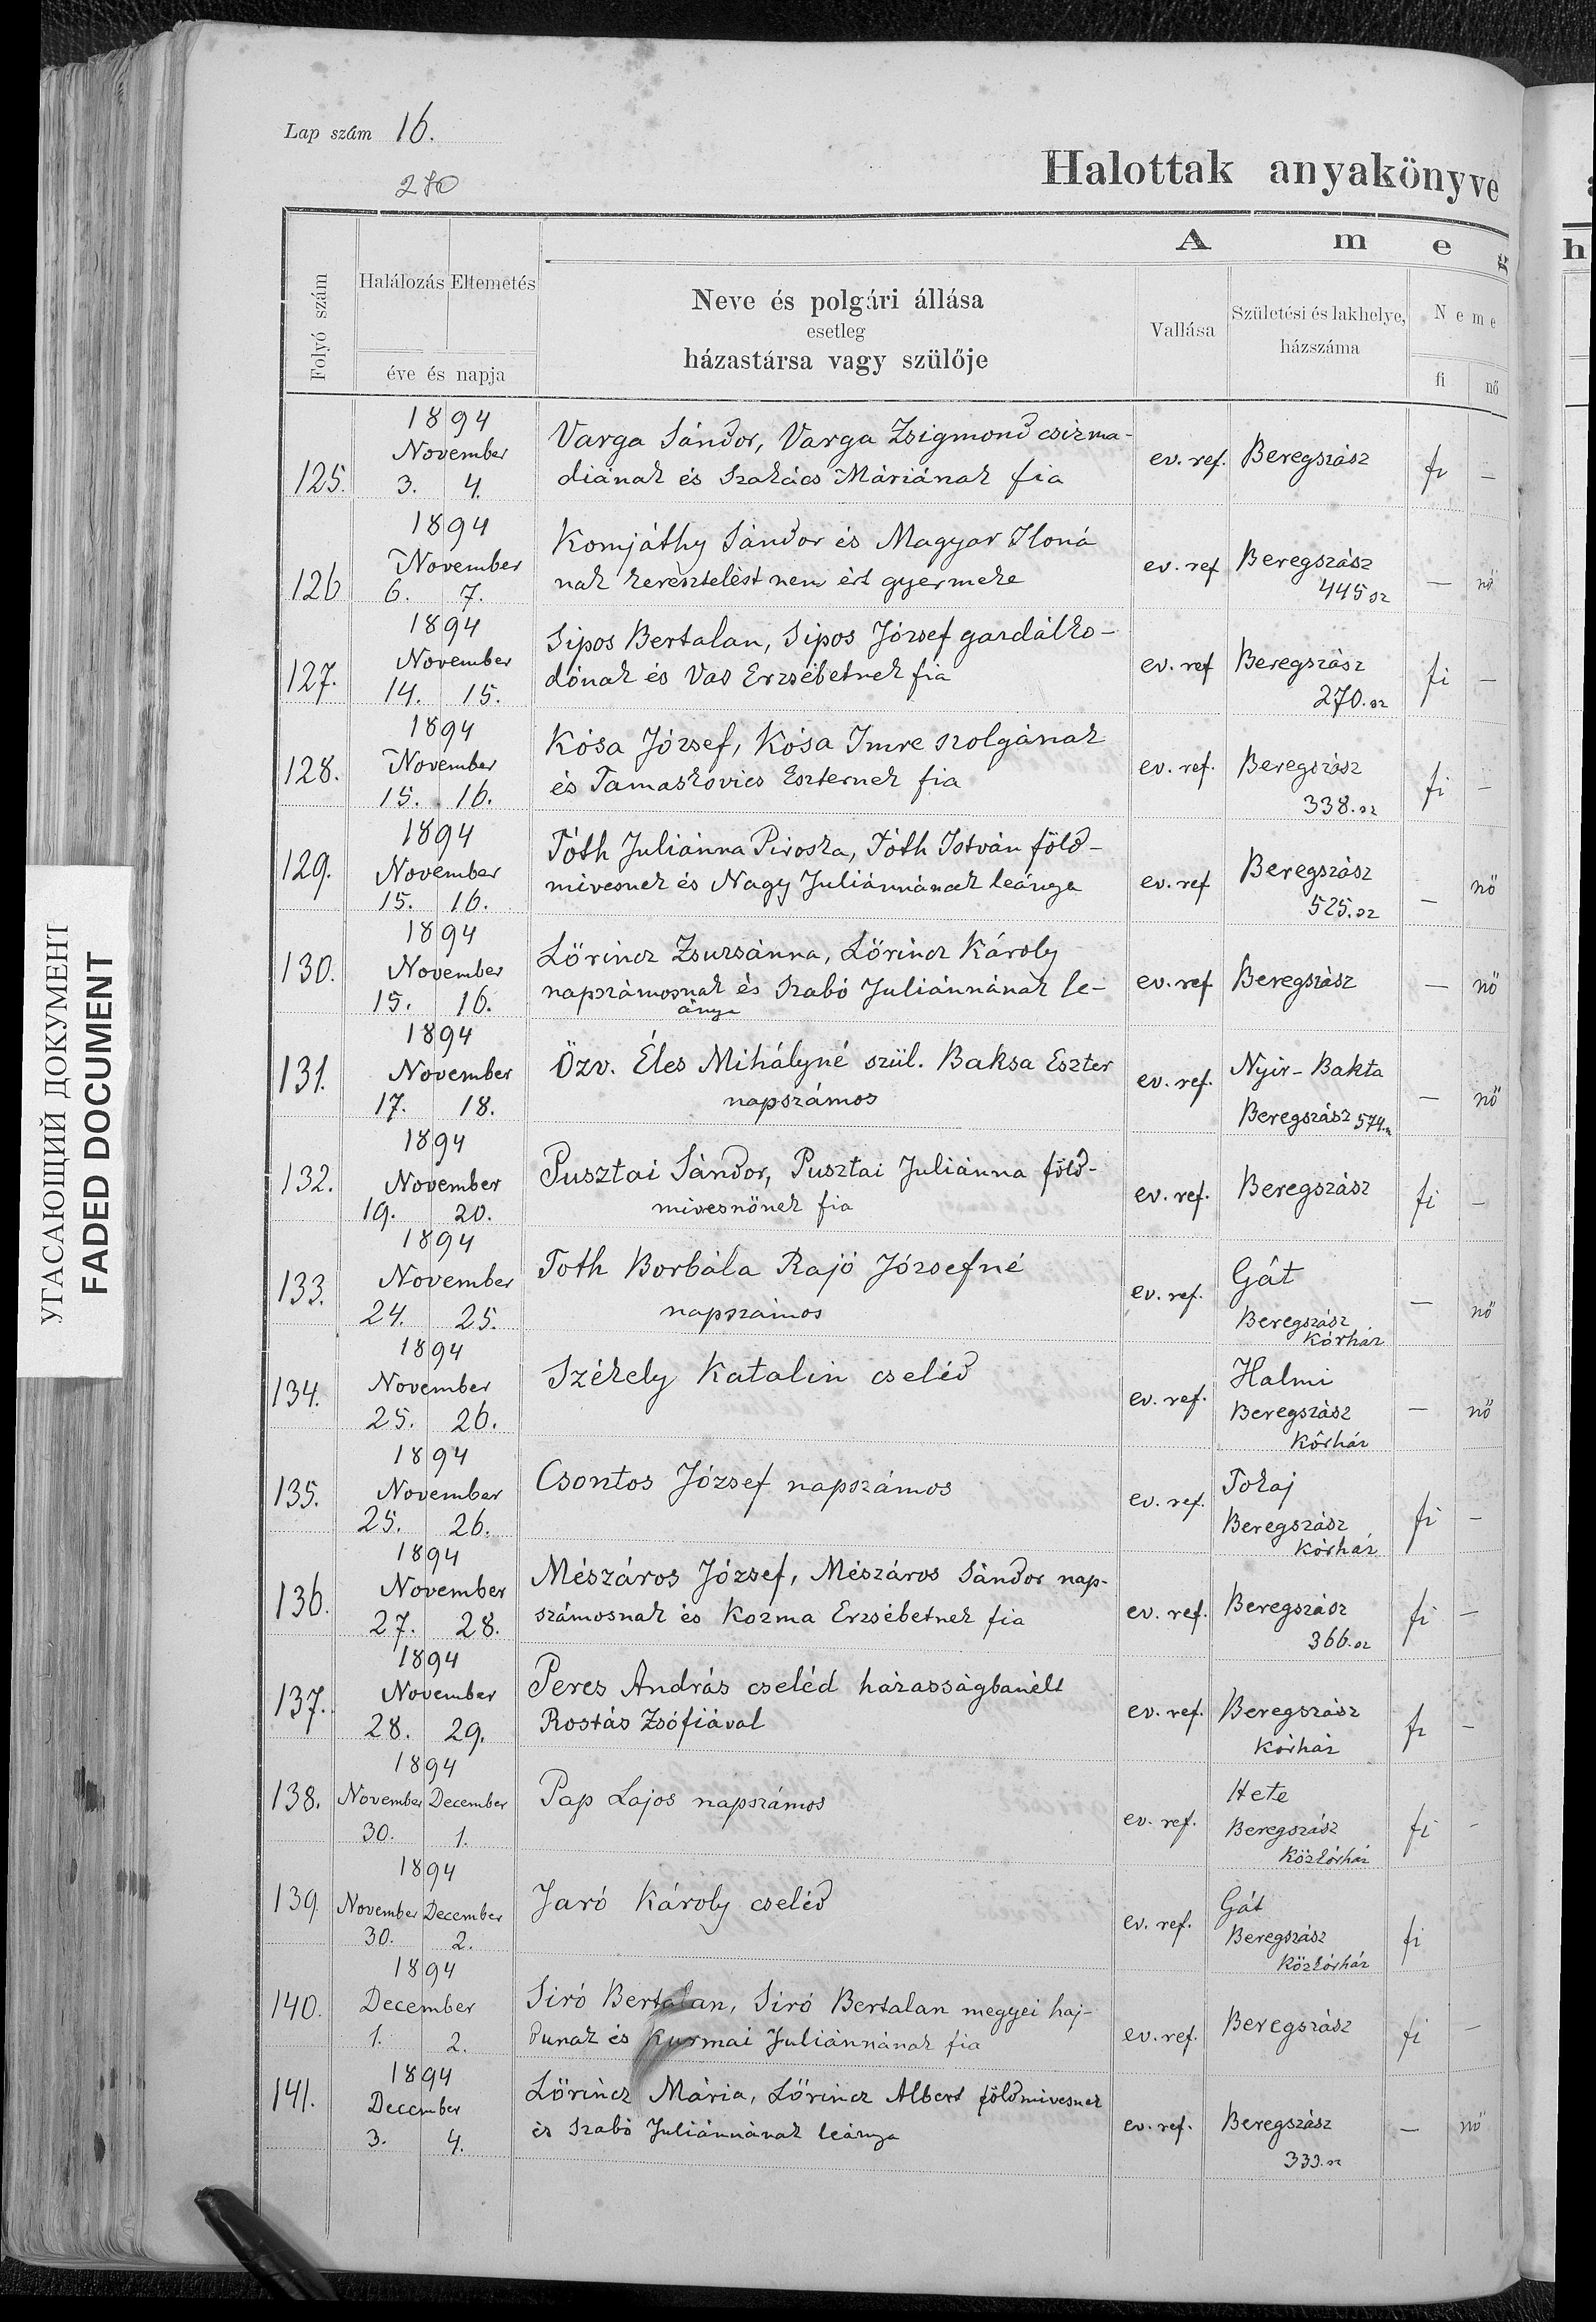 Lap szám 16.
280
Halottak anyakönyve
A m e g
h
Folyó szám
Halálozás Eltemetés
éve és napja
Neve és polgári állása
esetleg
házastársa vagy szülője
Vallása
Születési és lakhelye,
házszáma
Neme
fi nő
УГАСАЮЩИЙ ДОКУМЕНТ
FADED DOCUMENT
1894
November
125. 3. 4.
Varga Sándor, Varga Zsigmond csizma-
diának és Szakács Máriának fia
ev. ref. Beregszász fi —
1894
November
126 6. 7.
Komjáthy Sándor és Magyar Iloná
nak keresztelést nem ért gyermeke
ev. ref Beregszász
445 sz — nő
1894
November
127. 14. 15.
Sipos Bertalan, Sipos József gazdálko-
dónak és Vas Erzsébetnek fia
ev. ref Beregszász
270. sz fi —
1894
November
128. 15. 16.
Kósa József, Kósa Imre szolgának
és Tamaskovics Eszternek fia
ev. ref. Beregszász
338. sz fi —
1894
November
129. 15. 16.
Tóth Juliánna Piroska, Tóth István föld-
mivesnek és Nagy Juliánnának leánya
ev. ref Beregszász
525. sz — nő
1894
November
130. 15. 16.
Lőrincz Zsuzsánna, Lőrincz Károly
napszámosnak és Szabó Juliánnának le-
ánya
ev. ref Beregszász — nő
1894
November
131. 17. 18.
Özv. Éles Mihályné szül. Baksa Eszter
napszámos
ev. ref. Nyir-Bakta
Beregszász 574. sz — nő
1894
November
132. 19. 20.
Pusztai Sándor, Pusztai Juliánna föld-
mivesnőnek fia
ev. ref. Beregszász fi —
1894
November
133. 24. 25.
Toth Borbála Rajó Józsefné
napszámos
ev. ref. Gát
Beregszász
Kórház — nő
1894
November
134. 25. 26.
Székely Katalin cseléd
ev. ref. Halmi
Beregszász
Kórház — nő
1894
November
135. 25. 26.
Csontos József napszámos
ev. ref. Tokaj
Beregszász
Kórház fi —
1894
November
136. 27. 28.
Mészáros József, Mészáros Sándor nap-
számosnak és Kozma Erzsébetnek fia
ev. ref. Beregszász
366. sz fi —
1894
November
137. 28. 29.
Peres András cseléd házasságban élt
Rostás Zsófiával
ev. ref. Beregszász
Kórház fi —
1894
138. November December
30. 1.
Pap Lajos napszámos
ev. ref. Hete
Beregszász
Közkórház fi —
1894
139. November December
30. 2.
Jaró Károly cseléd
ev. ref. Gát
Beregszász
Közkórház fi
1894
140. December
1. 2.
Siró Bertalan, Siró Bertalan megyei haj-
dunak és Kurmai Juliánnának fia
ev. ref. Beregszász fi —
1894
141. December
3. 4.
Lőrincz Mária, Lőrincz Albert földmivesnek
és Szabó Juliánnának leánya
ev. ref. Beregszász
333. sz — nő